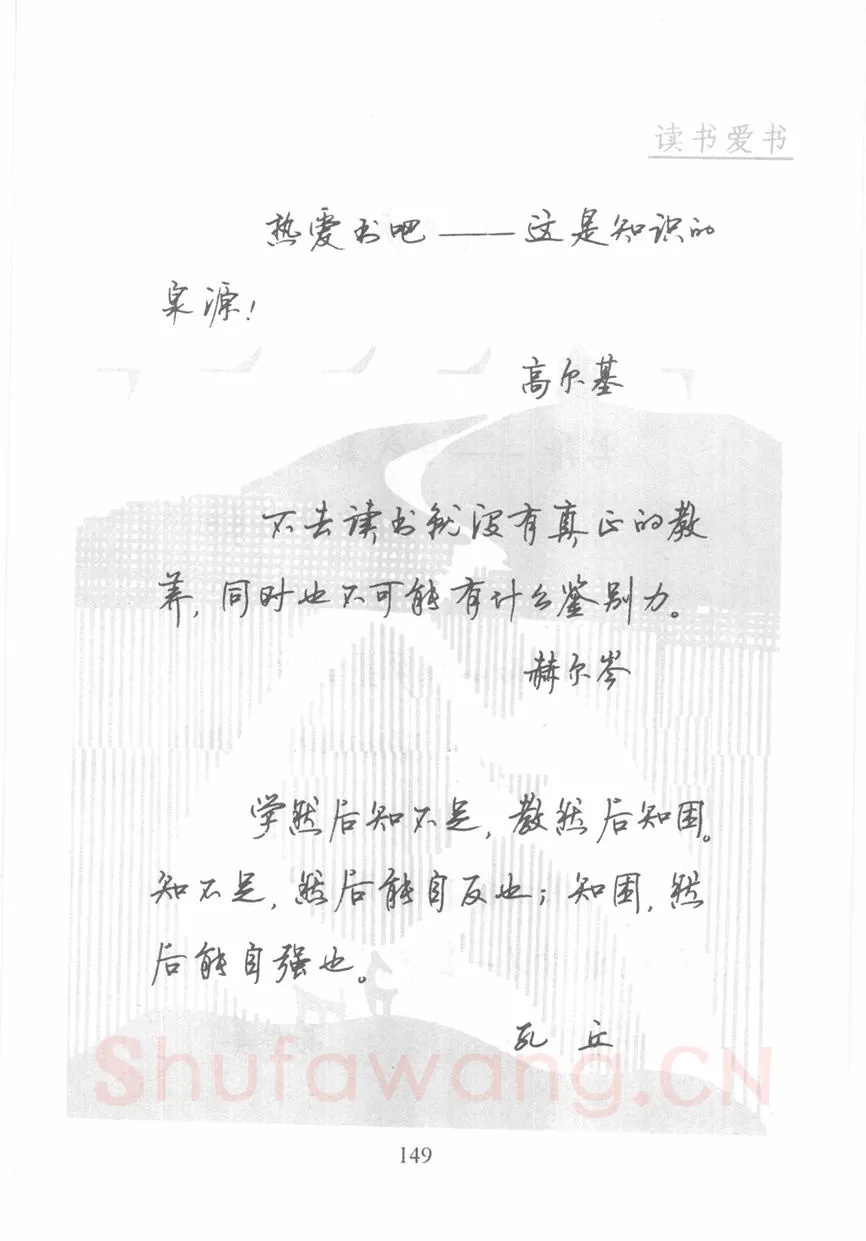 读书爱书
热爱书吧——这是知识的
泉源！
高尔基
不去读书就没有真正的教
养，同时也不可能有什么鉴别力。
赫尔岑
学然后知不足，教然后知困。
知不足，然后能自反也；知困，然
后能自强也。
孔 丘
Shufawang.CN
149